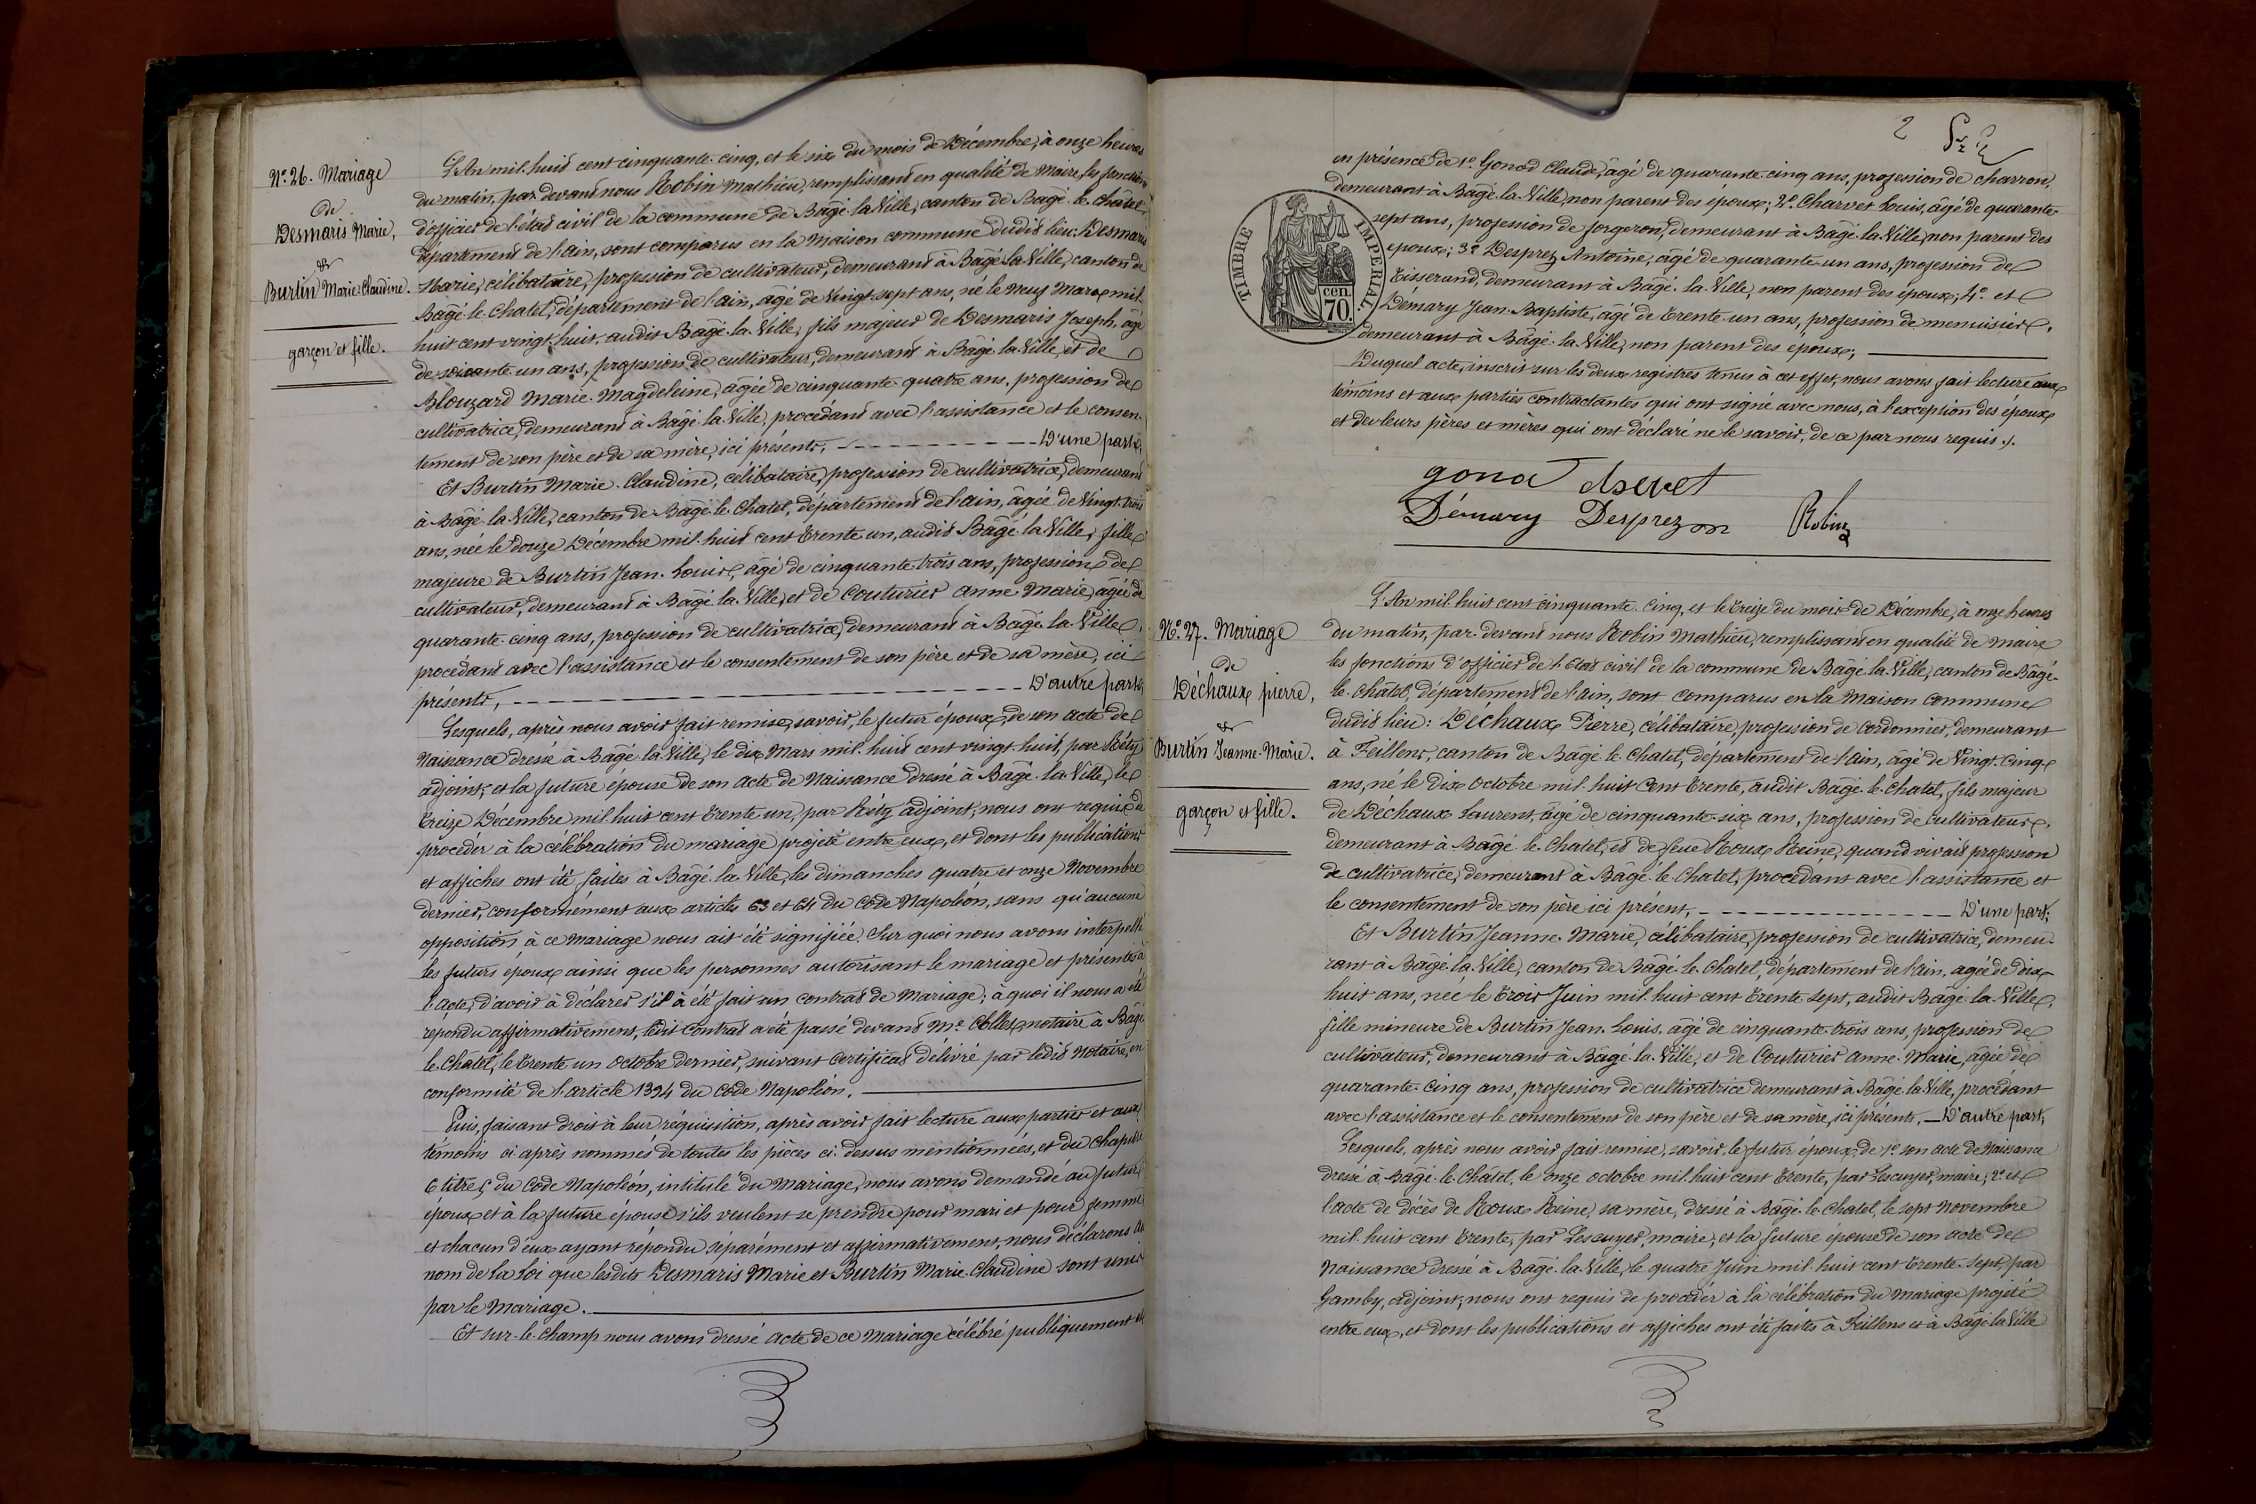 N.º 26. Mariage
De
Desmaris Marie,
&
Burtin Marie-Claudine.
garçon et fille.
L'An mil-huit cent cinquante-cinq, et le six du mois de Décembre, à onze heures
du matin, par devant nous Robin Mathieu, remplissant en qualité de Maire, les fonctions
d'officier de l'état civil de la commune de Bâgé-la-Ville, canton de Bâgé-le-Châtel,
département de l'ain, sont comparus en la Maison commune dudit lieu: Desmaris
Marie, célibataire, profession de cultivateur, demeurant à Bâgé-la-Ville, canton de
Bâgé-le-Chatel, département de l'ain, âgé de Vingt-sept ans, né le neuf Mars mil-
huit cent vingt-huit, audit Bâgé-la-Ville, fils majeur de Desmaris Joseph, âgé
de soixante-un ans, profession de cultivateur, demeurant à Bâgé-la-Ville, et de
Blouzard Marie-Magdeleine, âgée de cinquante-quatre ans, profession de
cultivatrice, demeurant à Bâgé-la-Ville, procédant avec l'assistance et le consen-
tement de son père et de sa mère, ici présents, D'une part;
Et Burtin Marie-Claudine, célibataire, profession de cultivatrice, demeurant
à Bâgé-la-Ville, canton de Bâgé-le-Chatel, département de l'ain, âgée de Vingt-trois
ans, née le douze Décembre mil-huit cent trente-un, audit Bâgé-la-Ville, fille
majeure de Burtin Jean-Louis, âgé de cinquante-trois ans, profession de
cultivateur, demeurant à Bâgé-la-Ville, et de Couturier anne-Marie, âgée de
quarante-cinq ans, profession de cultivatrice, demeurant à Bâgé-la-Ville,
procédant avec l'assistance et le consentement de son père et de sa mère, ici
présents, D'autre part;
Lesquels, après nous avoir fait remise, savoir, le futur époux, de son acte de
Naissance dressé à Bâgé-la-Ville, le dix Mars mil-huit cent vingt-huit, par Réty
adjoint, et la future épouse de son acte de Naissance dressé à Bâgé-la-Ville, le
treize Décembre mil-huit cent trente-un, par Réty adjoint, nous ont requis de
procéder à la célébration du mariage projeté entre eux, et dont les publications
et affiches ont été faites à Bâgé-la-Ville, les dimanches quatre et onze Novembre
dernier, conformément aux articles 63 et 64 du Code Napoléon, sans qu'aucune
opposition à ce mariage nous ait été signifiée. Sur quoi nous avons interpellé
les futurs époux ainsi que les personnes autorisant le mariage et présentes à
l'acte, d'avoir à déclarer s'il a été fait un contrat de Mariage; à quoi il nous a été
répondu affirmativement, ledit Contrat a été passé devant Me notaire à Bâgé-
le-Chatel, le trente-un Octobre dernier, suivant certificat délivré par ledit Notaire, en
conformité de l'article 1394 du Code Napoléon.
Puis, faisant droit à leur réquisition, après avoir fait lecture aux parties et aux
témoins ci après nommés de toutes les pièces ci-dessus mentionnées, et du Chapitre
6 titre 5 du Code Napoléon, intitulé du Mariage, nous avons demandé au futur
époux et à la future épouse s'ils veulent se prendre pour mari et pour femme
et chacun d'eux ayant répondu séparément et affirmativement, nous déclarons au
nom de la Loi que lesdits Desmaris Marie et Burtin Marie-Claudine sont unis
par le Mariage.
Et sur-le-champ nous avons dressé acte de ce Mariage célébré publiquement
2
en présence de 1º Gonod Claude, âgé de quarante-cinq ans, profession de charron,
demeurant à Bâgé-la-Ville, non parent des époux; 2º Charvet Louis, âgé de quarante-
sept ans, profession de forgeron, demeurant à Bâgé-la-Ville, non parent des
époux; 3º Desprez Antoine, âgé de quarante-un ans, profession de
Tisserand, demeurant à Bâgé-la-Ville, non parent des époux; 4º et
Demary Jean-Baptiste, âgé de trente-un ans, profession de menuisier,
demeurant à Bâgé-la-Ville, non parent des époux;
Duquel acte, inscrit sur les deux registres tenus à cet effet, nous avons fait lecture aux
témoins et aux parties contractantes qui ont signé avec nous, à l'exception des époux
et de leurs pères et mères qui ont déclaré ne le savoir, de ce par nous requis.
TIMBRE IMPERIAL
cen
70.
gonod
Démary Desprez Robin
N.º 27. Mariage
de
Déchaux pierre,
&
Burtin Jeanne-Marie.
garçon et fille.
L'An mil-huit cent cinquante-cinq, et le treize du mois de Décembre, à onze heures
du matin, par-devant nous Robin Mathieu, remplissant en qualité de Maire
les fonctions d'officier de l'Etat civil de la commune de Bâgé-la-Ville, canton de Bâgé-
le-Châtel, département de l'ain, sont comparus en la Maison commune
dudit lieu: Déchaux Pierre, célibataire, profession de cordonnier, demeurant
à Feillens, canton de Bâgé-le-Chatel, département de l'ain, âgé de Vingt-Cinq
ans, né le Dix Octobre mil-huit Cent trente, audit Bâgé-le-Chatel, fils majeur
de Déchaux Laurent, âgé de cinquante-six ans, profession de cultivateur,
demeurant à Bâgé-le-Chatel, et de feue Roux Reine, quand vivait profession
de cultivatrice, demeurant à Bâgé-le-Chatel, procédant avec l'assistance et
le consentement de son père ici présent, D'une part;
Et Burtin Jeanne-Marie, célibataire, profession de cultivatrice, demeu-
rant à Bâgé-la-Ville, canton de Bâgé-le-Chatel, département de l'ain, agée de dix-
huit ans, née le trois Juin mil-huit cent trente-sept, audit Bâgé-la-Ville,
fille mineure de Burtin Jean-Louis, âgé de cinquante-trois ans, profession de
cultivateur, demeurant à Bâgé-la-Ville, et de Couturier anne-Marie, âgée de
quarante-cinq ans, profession de cultivatrice demeurant à Bâgé-la-Ville, procédant
avec l'assistance et le consentement de son père et de sa mère, ici présents, D'autre part;
Lesquels, après nous avoir fait remise, savoir, le futur époux, de 1º son acte de Naissance
dressé à Bâgé-le-Châtel, le onze octobre mil-huit cent trente, par Lescuyer, maire; 2º et
l'acte de décès de Roux Reine, sa mère, dressé à Bâgé-le-Chatel, le sept Novembre
mil-huit cent trente, par Lescuyer, maire, et la future épouse de son acte de
Naissance dressé à Bâgé-la-Ville, le quatre Juin mil-huit cent trente-sept, par
Gamby, adjoint, nous ont requis de procéder à la célébration du Mariage projeté
entre eux, et dont les publications et affiches ont été faites à Feillens et à Bâgé-la-Ville